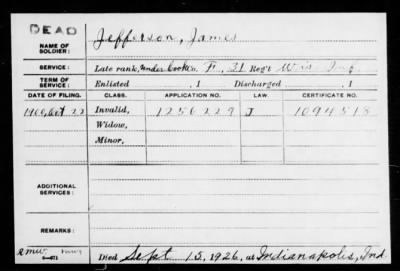 DEAD
NAME OF SOLDIER: Jefferson, James
SERVICE: Late rank, Under Cook Co. F, 31 Reg't Wis. Inf.
TERM OF SERVICE: Enlisted , 1 Discharged , 1
DATE OF FILING. CLASS. APPLICATION NO. LAW. CERTIFICATE NO.
1900, Oct 22 Invalid, 1256229 J 1094518
Widow,
Minor,
ADDITIONAL SERVICES:
REMARKS:
Died Sept 15, 1926, at Indianapolis, Ind.